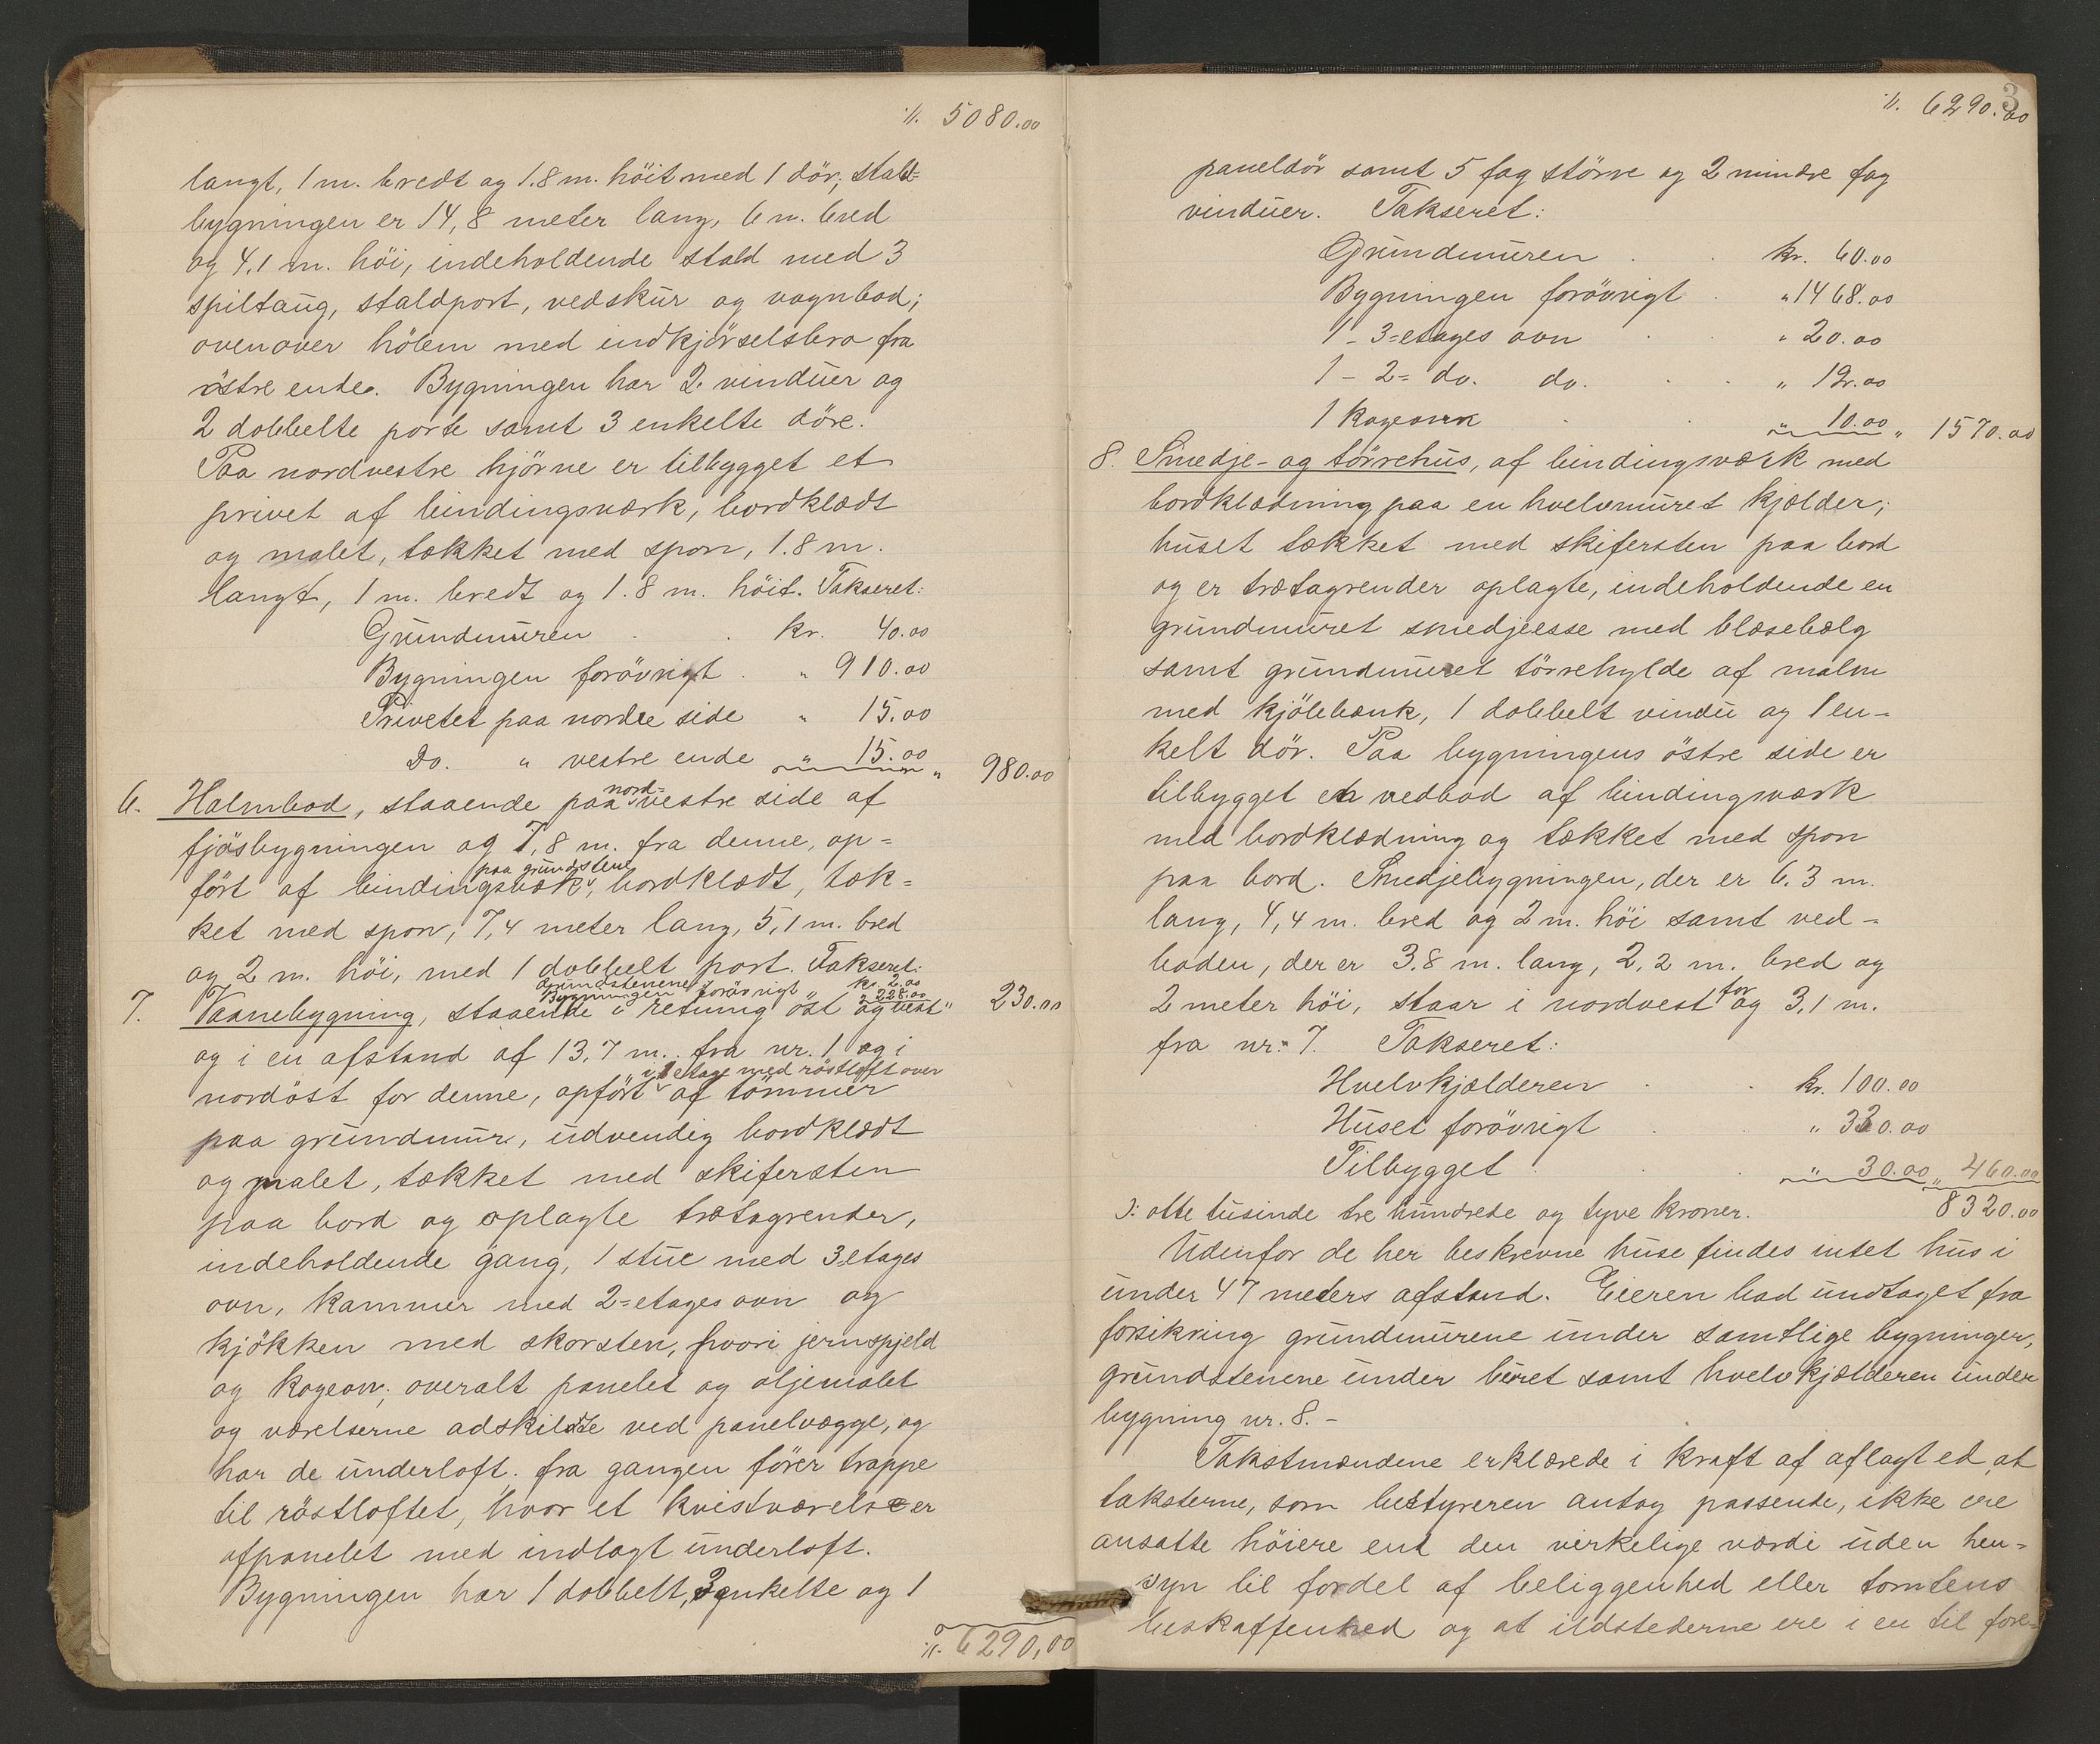 ·/. 5080.00
langt, 1 m. bredt og 1.8 m. höit med 1 dör; stald=
bygningen er 14,8 meter lang, 6 m. bred
og 4,1 m. höi, indeholdende stald med 3
spiltaug, staldport, vedskur og vognbod;
ovenover hölem med indkjörselsbro fra
östre ende. Bygningen har 2 vinduer og
2 dobbelte porte samt 3 enkelte döre.
Paa nordvestre hjörne er tilbygget et
privet af bindingsværk, bordklædt
og malet, tækket med spon, 1.8 m.
langt, 1 m. bredt og 1.8 m. höit. Takseret:
Grundmuren . . kr. 40.00
Bygningen forövrigt . " 910.00
Privetet paa nordre side " 15.00
Do. " vestre ende " 15.00 " 980.00
6. Halmbod, staaende paa nord=vestre side af
fjösbygningen og 7,8 m. fra denne, op=
fört af bindingsværk paa grundstene, bordklædt, tæk=
ket med spon, 7,4 meter lang, 5,1 m. bred
og 2 m. höi, med 1 dobbelt port. Takseret:
Grundstenene kr. 2.00
Bygningen forövrigt " 228.00 " 230.00
7. Vaanebygning, staaende i retning öst og vest
og i en afstand af 13,7 m. fra nr. 1 og i
nordöst for denne, opfört i 1 etage med röstloft over af tömmer
paa grundmur, udvendig bordklædt
og malet, tækket med skifersten
paa bord og oplagte trætagrender,
indeholdende gang, 1 stue med 3 etages
ovn, kammer med 2=etages ovn og
kjökken med skorsten, hvori jernspjeld
og kogeovn; overalt panelet og oljemalet
og værelserne adskildte ved panelvægge, og
har de underloft. fra gangen förer trappe
til röstloftet, hvor et kvistværelse er
afpanelet med indlagt underloft.
Bygningen har 1 dobbelt, 3 enkelte og 1
·/. 6290,00
3
·/. 6290.00
paneldör samt 5 fag större og 2 mindre fag
vinduer. Takseret:
Grundmuren . . kr. 60.00
Bygningen forövrigt . " 1468.00
1 - 3=etages ovn . " 20.00
1 - 2= do. do. . . " 12.00
1 kogeovn . . " 10.00 " 1570.00
8. Smedje- og törrehus, af bindingsværk med
bordklædning paa en hvelvmuret kjælder;
huset tækket med skifersten paa bord
og er trætagrender oplagte, indeholdende en
grundmuret smedjeesse med blæsebælg
samt grundmuret törrehylde af malm
med kjölebænk, 1 dobbelt vindu og 1 en=
kelt dör. Paa bygningens östre side er
tilbygget en vedbod af bindingsværk
med bordklædning og tækket med spon
paa bord. Smedjebygningen, der er 6.3 m.
lang, 4,4 m. bred og 2 m. höi samt ved=
boden, der er 3.8 m. lang, 2,2 m. bred og
2 meter höi, staar i nordvest for og 3,1 m.
fra nr. 7. Takseret:
Hvelvkjælderen . . kr. 100.00
Huset forövrigt . " 330.00
Tilbygget . . " 30.00 " 460.00
ɔ: otte tusinde tre hundrede og tyve kroner. 8320.00
Udenfor de her beskrevne huse findes intet hus i
under 47 meters afstand. Eieren bad undtaget fra
forsikring grundmurene under samtlige bygninger,
grundstenene under buret samt hvelvkjælderen under
bygning nr. 8. -
Takstmændene erklærede i kraft af aflagt ed, at
taksterne, som bestyreren antog passende, ikke ere
ansatte höiere end den virkelige værdi uden hen=
syn til fordel af beliggenhed eller tomtens
beskaffenhed og at ildstederne ere i en til fore=